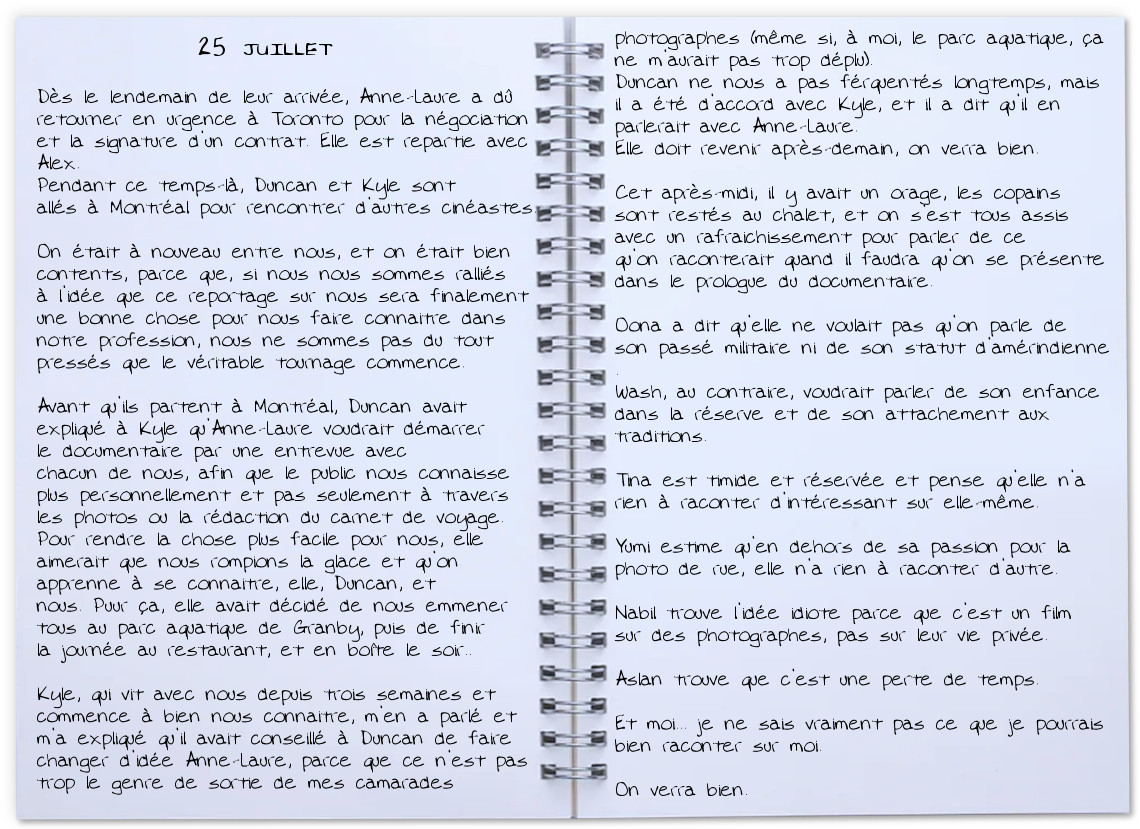 25 JUILLET
Dès le lendemain de leur arrivée, Anne-Laure a dû
retourner en urgence à Toronto pour la négociation
et la signature d'un contrat. Elle est repartie avec
Alex.
Pendant ce temps-là, Duncan et Kyle sont
allés à Montréal pour rencontrer d'autres cinéastes.
On était à nouveau entre nous, et on était bien
contents, parce que, si nous nous sommes ralliés
à l'idée que ce reportage sur nous sera finalement
une bonne chose pour nous faire connaitre dans
notre profession, nous ne sommes pas du tout
pressés que le véritable tournage commence.
Avant qu'ils partent à Montréal, Duncan avait
expliqué à Kyle qu'Anne-Laure voudrait démarrer
le documentaire par une entrevue avec
chacun de nous, afin que le public nous connaisse
plus personnellement et pas seulement à travers
les photos ou la rédaction du carnet de voyage.
Pour rendre la chose plus facile pour nous, elle
aimerait que nous rompions la glace et qu'on
apprenne à se connaitre, elle, Duncan, et
nous. Puur ça, elle avait décidé de nous emmener
tous au parc aquatique de Granby, puis de finir
la journée au restaurant, et en boîte le soir..
Kyle, qui vit avec nous depuis trois semaines et
commence à bien nous connaitre, m'en a parlé et
m'a expliqué qu'il avait conseillé à Duncan de faire
changer d'idée Anne-Laure, parce que ce n'est pas
trop le genre de sortie de mes camarades
photographes (même si, à moi, le parc aquatique, ça
ne m'aurait pas trop déplu).
Duncan ne nous a pas férquentés longtemps, mais
il a été d'accord avec Kyle, et il a dit qu'il en
parlerait avec Anne-Laure.
Elle doit revenir après-demain, on verra bien.
Cet après-midi, il y avait un orage, les copains
sont restés au chalet, et on s'est tous assis
avec un rafraichissement pour parler de ce
qu'on raconterait quand il faudra qu'on se présente
dans le prologue du documentaire.
Oona a dit qu'elle ne voulait pas qu'on parle de
son passé militaire ni de son statut d'amérindienne
.
Wash, au contraire, voudrait parler de son enfance
dans la réserve et de son attachement aux
traditions.
Tina est timide et réservée et pense qu'elle n'a
rien à raconter d'intéressant sur elle-même.
Yumi estime qu'en dehors de sa passion pour la
photo de rue, elle n'a rien à raconter d'autre.
Nabil trouve l'idée idiote parce que c'est un film
sur des photographes, pas sur leur vie privée.
Aslan trouve que c'est une perte de temps.
Et moi... je ne sais vraiment pas ce que je pourrais
bien raconter sur moi.
On verra bien.